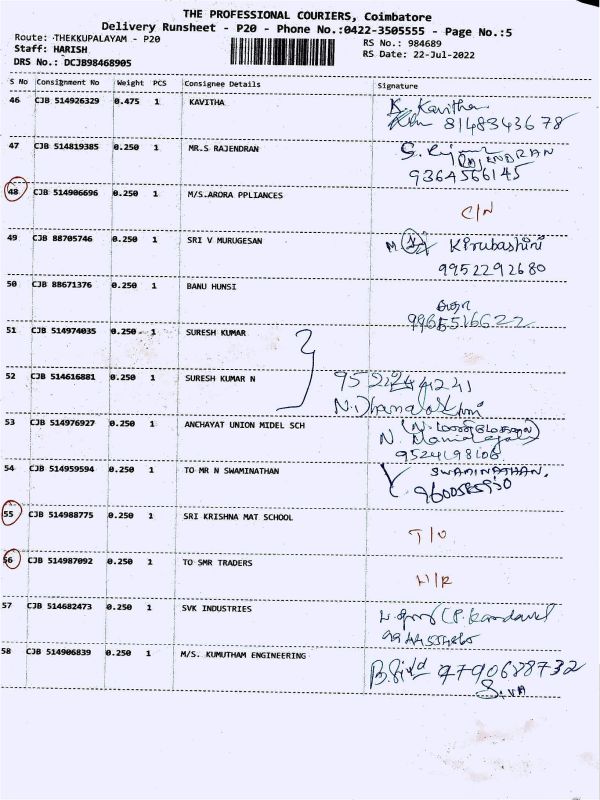 THE PROFESSIONAL COURIERS, Coimbatore
Delivery Runsheet - P20 - Phone No.:0422-3505555 - Page No.:5
Route: THEKKUPALAYAM - P20
RS No.: 984689
Staff: HARISH
RS Date: 22-Jul-2022
DRS No.: DCJB98468905
S No Consignment No Weight PCS Consignee Details Signature
46 CJB 514926329 0.475 1 KAVITHA K. Kavitha
8148343678
47 CJB 514819385 0.250 1 MR.S RAJENDRAN
RAJENDRAN
9364566145
48 CJB 514906696 0.250 1 M/S.ARORA PPLIANCES
C/N
49 CJB 88705746 0.250 1 SRI V MURUGESAN Kirubashini
9952292680
50 CJB 88671376 0.250 1 BANU HUNSI
9965516622
51 CJB 514974035 0.250 1 SURESH KUMAR
52 CJB 514616881 0.250 1 SURESH KUMAR N
N.Dhanalakshmi
53 CJB 514976927 0.250 1 ANCHAYAT UNION MIDEL SCH
9524198106
54 CJB 514959594 0.250 1 TO MR N SWAMINATHAN SWAMINATHAN.
55 CJB 514988775 0.250 1 SRI KRISHNA MAT SCHOOL
T/O
56 CJB 514987092 0.250 1 TO SMR TRADERS
N/R
57 CJB 514682473 0.250 1 SVK INDUSTRIES
58 CJB 514906839 0.250 1 M/S. KUMUTHAM ENGINEERING 9790688732
Siva